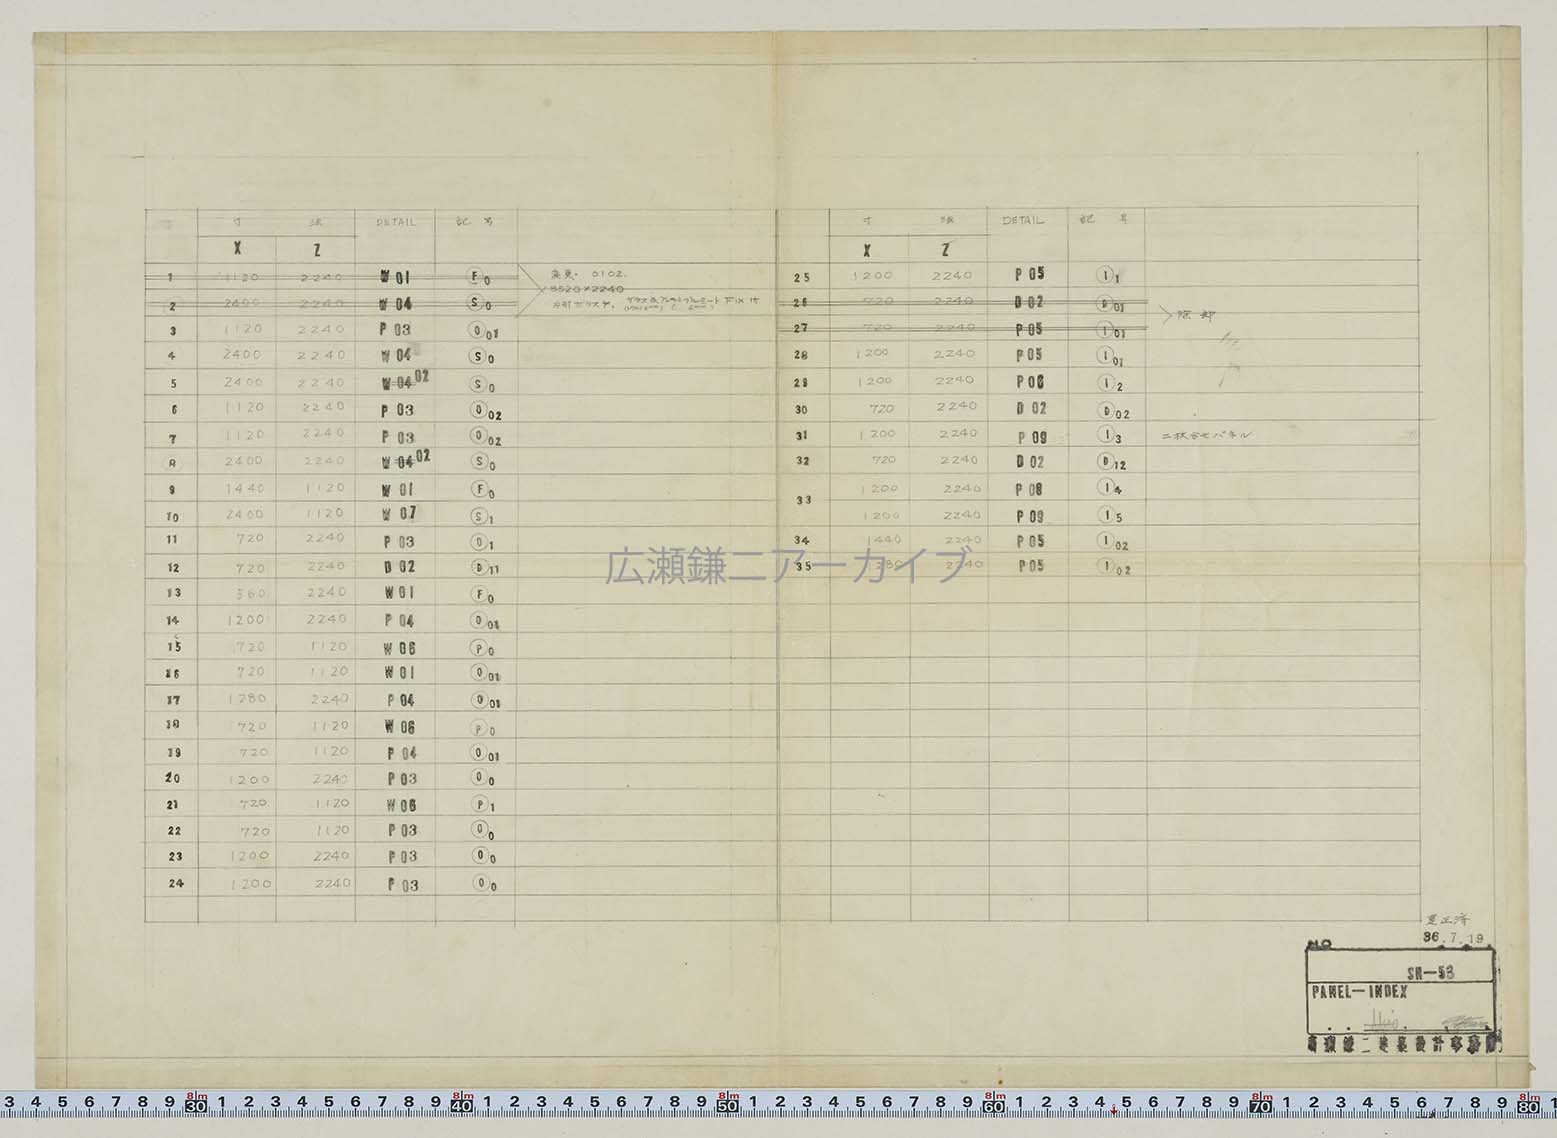 寸 法 DETAIL 記 号
X Z
1 1120 2240 W 01 F0 変更. 0102.
3520×2240
2 2400 2240 W 04 S0
3 1120 2240 P 03 O01
4 2400 2240 W 04 S0
5 2400 2240 W 04 02 S0
6 1120 2240 P 03 O02
7 1120 2240 P 03 O02
8 2400 2240 W 04 02 S0
9 1440 1120 W 01 F0
10 2400 1120 W 07 S1
11 720 2240 P 03 O1
12 720 2240 D 02 D11
13 560 2240 W 01 F0
14 1200 2240 P 04 O01
15 720 1120 W 06 P0
16 720 1120 W 01 O01
17 1280 2240 P 04 O01
18 720 1120 W 06 P0
19 720 1120 P 04 O01
20 1200 2240 P 03 O0
21 720 1120 W 06 P1
22 720 1120 P 03 O0
23 1200 2240 P 03 O0
24 1200 2240 P 03 O0
寸 法 DETAIL 記 号
X Z
25 1200 2240 P 05 I1
26 720 2240 D 02 D01
除却
27 720 2240 P 05 I01
28 1200 2240 P 05 I01
29 1200 2240 P 06 I2
30 720 2240 D 02 D02
31 1200 2240 P 09 I3 二枚合せパネル
32 720 2240 D 02 D12
33 1200 2240 P 08 I4
1200 2240 P 09 I5
34 1440 2240 P 05 I02
35 1280 2240 P 05 I02
広瀬鎌二アーカイブ
更正済
36.7.19
NO
SH-53
PANEL-INDEX
廣瀬鎌二建築設計事務所
3 4 5 6 7 8 9 8m 30 1 2 3 4 5 6 7 8 9 8m 40 1 2 3 4 5 6 7 8 9 8m 50 1 2 3 4 5 6 7 8 9 8m 60 1 2 3 4 5 6 7 8 9 8m 70 1 2 3 4 5 6 7 8 9 8m 80 1